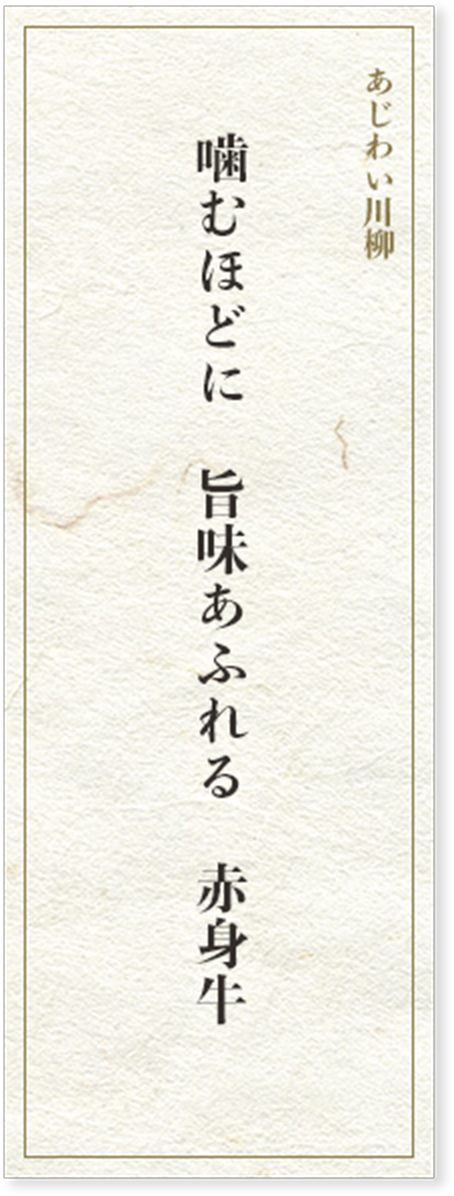 あじわい川柳
噛むほどに　旨味あふれる　赤身牛